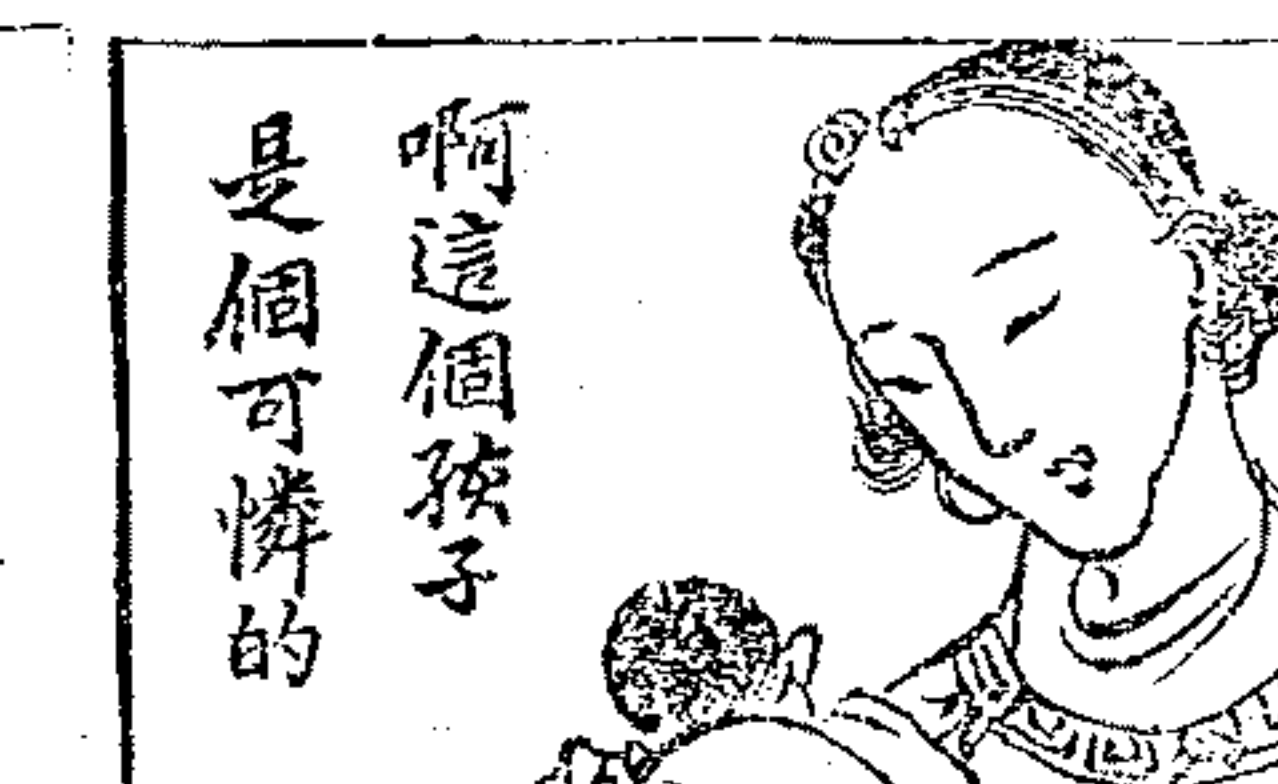 啊這個孩子
是個可憐的